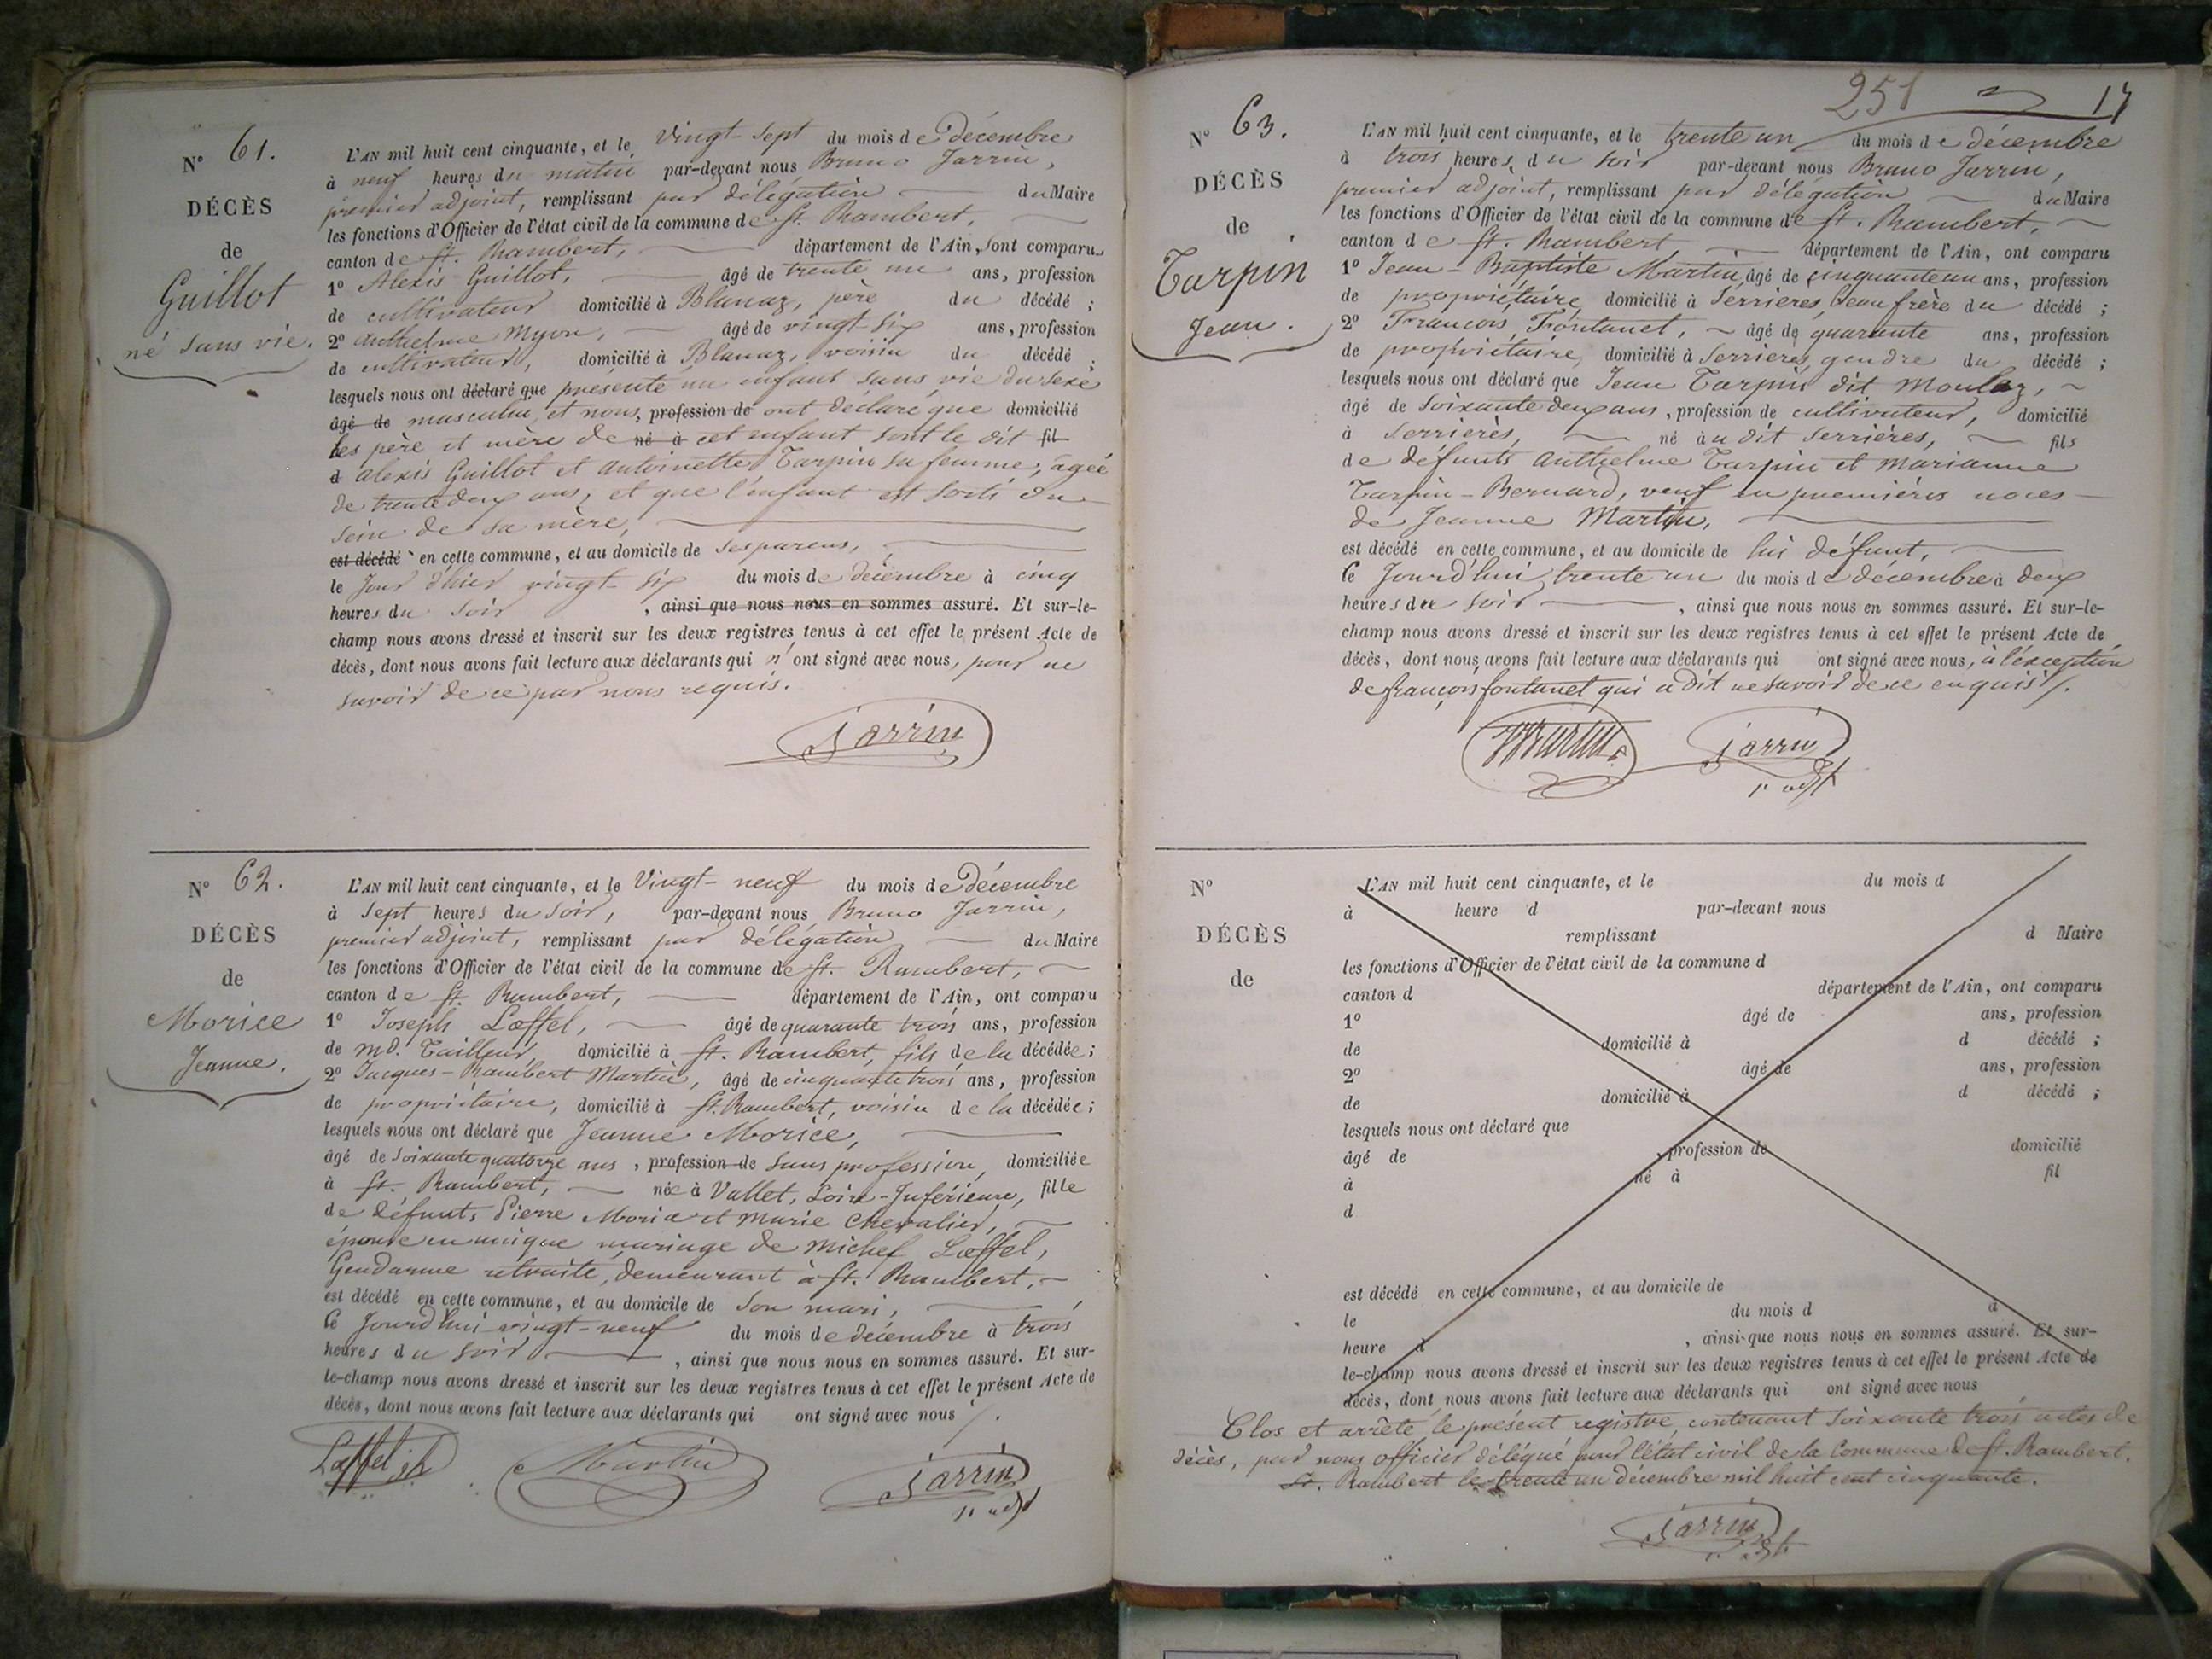 N° 61.
DÉCÈS
de
Guillot
né sans vie.
L'AN mil huit cent cinquante, et le vingt-sept du mois de Décembre
à neuf heures du matin par-devant nous Bruno Jarrin,
premier adjoint, remplissant par délégation du Maire
les fonctions d'Officier de l'état civil de la commune de St. Rambert,
canton de St. Rambert, département de l'Ain, sont comparus
1° Alexis Guillot, âgé de trente un ans, profession
de cultivateur domicilié à Blanaz, père du décédé ;
2° Anthelme Myon, âgé de vingt-six ans, profession
de cultivateur, domicilié à Blanaz, voisin du décédé ;
lesquels nous ont déclaré que présenté un enfant sans vie du sexe
âgé de masculin, et nous, profession de ont déclaré que domicilié
les père et mère de né à cet enfant sont le dit fil
d Alexis Guillot et Antoinette Tarpin sa femme, âgée
de trente deux ans, et que l'enfant est sorti du
sein de sa mère,
est décédé en cette commune, et au domicile de ses parens,
le jour d'hier vingt-six du mois de décembre à cinq
heures du soir , ainsi que nous nous en sommes assuré. Et sur-le-
champ nous avons dressé et inscrit sur les deux registres tenus à cet effet le présent Acte de
décès, dont nous avons fait lecture aux déclarants qui n'ont signé avec nous, pour ne
savoir de ce par nous requis.
Jarrin
N° 62.
DÉCÈS
de
Morice
Jeanne.
L'AN mil huit cent cinquante, et le Vingt-neuf du mois de Décembre
à sept heures du soir, par-devant nous Bruno Jarrin,
premier adjoint, remplissant par délégation du Maire
les fonctions d'Officier de l'état civil de la commune de St. Rambert,
canton de St. Rambert, département de l'Ain, ont comparu
1° Joseph Lœffel, âgé de quarante trois ans, profession
de md. Tailleur, domicilié à St. Rambert, fils de la décédée ;
2° Jacques-Rambert Martin, âgé de cinquante trois ans, profession
de propriétaire, domicilié à St. Rambert, voisin de la décédée ;
lesquels nous ont déclaré que Jeanne Morice,
âgé de soixante quatorze ans, profession de sans profession, domiciliée
à St. Rambert, née à Vallet, Loire-Inférieure, fille
de défunts Pierre Morice et Marie Chevalier,
épouse en unique mariage de Michel Lœffel,
Gendarme retraité, demeurant à St. Rambert,
est décédé en cette commune, et au domicile de son mari,
le jourd'hui vingt-neuf du mois de décembre à trois
heures du soir , ainsi que nous nous en sommes assuré. Et sur-
le-champ nous avons dressé et inscrit sur les deux registres tenus à cet effet le présent Acte de
décès, dont nous avons fait lecture aux déclarants qui ont signé avec nous /.
Lœffel jh Martin Jarrin
1r adjt
251 17
N° 63.
DÉCÈS
de
Tarpin
Jean.
L'AN mil huit cent cinquante, et le trente un du mois de décembre
à trois heures du soir par-devant nous Bruno Jarrin,
premier adjoint, remplissant par délégation du Maire
les fonctions d'Officier de l'état civil de la commune de St. Rambert,
canton de St. Rambert département de l'Ain, ont comparu
1° Jean-Baptiste Martin, âgé de cinquante un ans, profession
de propriétaire, domicilié à Serrières, beau frère du décédé ;
2° François Fontanet, âgé de quarante ans, profession
de propriétaire, domicilié à Serrières, gendre du décédé ;
lesquels nous ont déclaré que Jean Tarpin dit Moulaz,
âgé de soixante deux ans, profession de cultivateur, domicilié
à Serrières, né au dit Serrières, fils
de défunts Anthelme Tarpin et Marianne
Tarpin-Bernard, veuf en premières noces
de Jeanne Martin,
est décédé en cette commune, et au domicile de lui défunt,
le jourd'hui trente un du mois de décembre à deux
heures du soir , ainsi que nous nous en sommes assuré. Et sur-le-
champ nous avons dressé et inscrit sur les deux registres tenus à cet effet le présent Acte de
décès, dont nous avons fait lecture aux déclarants qui ont signé avec nous, à l'exception
de françois fontanet qui a dit ne savoir de ce enquis /.
Martin Jarrin
1r adjt
N°
DÉCÈS
de
L'AN mil huit cent cinquante, et le du mois d
à heure d par-devant nous
remplissant d Maire
les fonctions d'Officier de l'état civil de la commune d
canton d département de l'Ain, ont comparu
1° âgé de ans, profession
de domicilié à d décédé ;
2° âgé de ans, profession
de domicilié à d décédé ;
lesquels nous ont déclaré que
âgé de , profession de domicilié
à né à fil
d
est décédé en cette commune, et au domicile de
le du mois d à
heure d , ainsi que nous nous en sommes assuré. Et sur-
le-champ nous avons dressé et inscrit sur les deux registres tenus à cet effet le présent Acte de
décès, dont nous avons fait lecture aux déclarants qui ont signé avec nous
Clos et arrêté le présent registre, contenant soixante trois actes de
décès, par nous officier délégué pour l'état civil de la Commune de St. Rambert.
St. Rambert le trente un décembre mil huit cent cinquante.
Jarrin
1r adjt